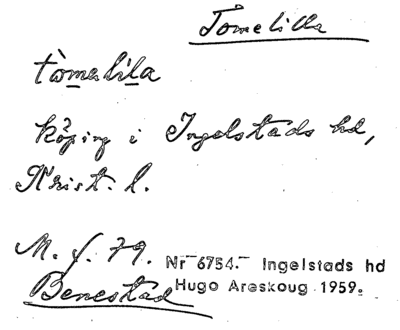 Tomelilla
tòmalila
köping i Ingelstads hd,
Krist. l.
M. f. 79. Nr 6754. Ingelstads hd
Benestad Hugo Areskoug 1959.